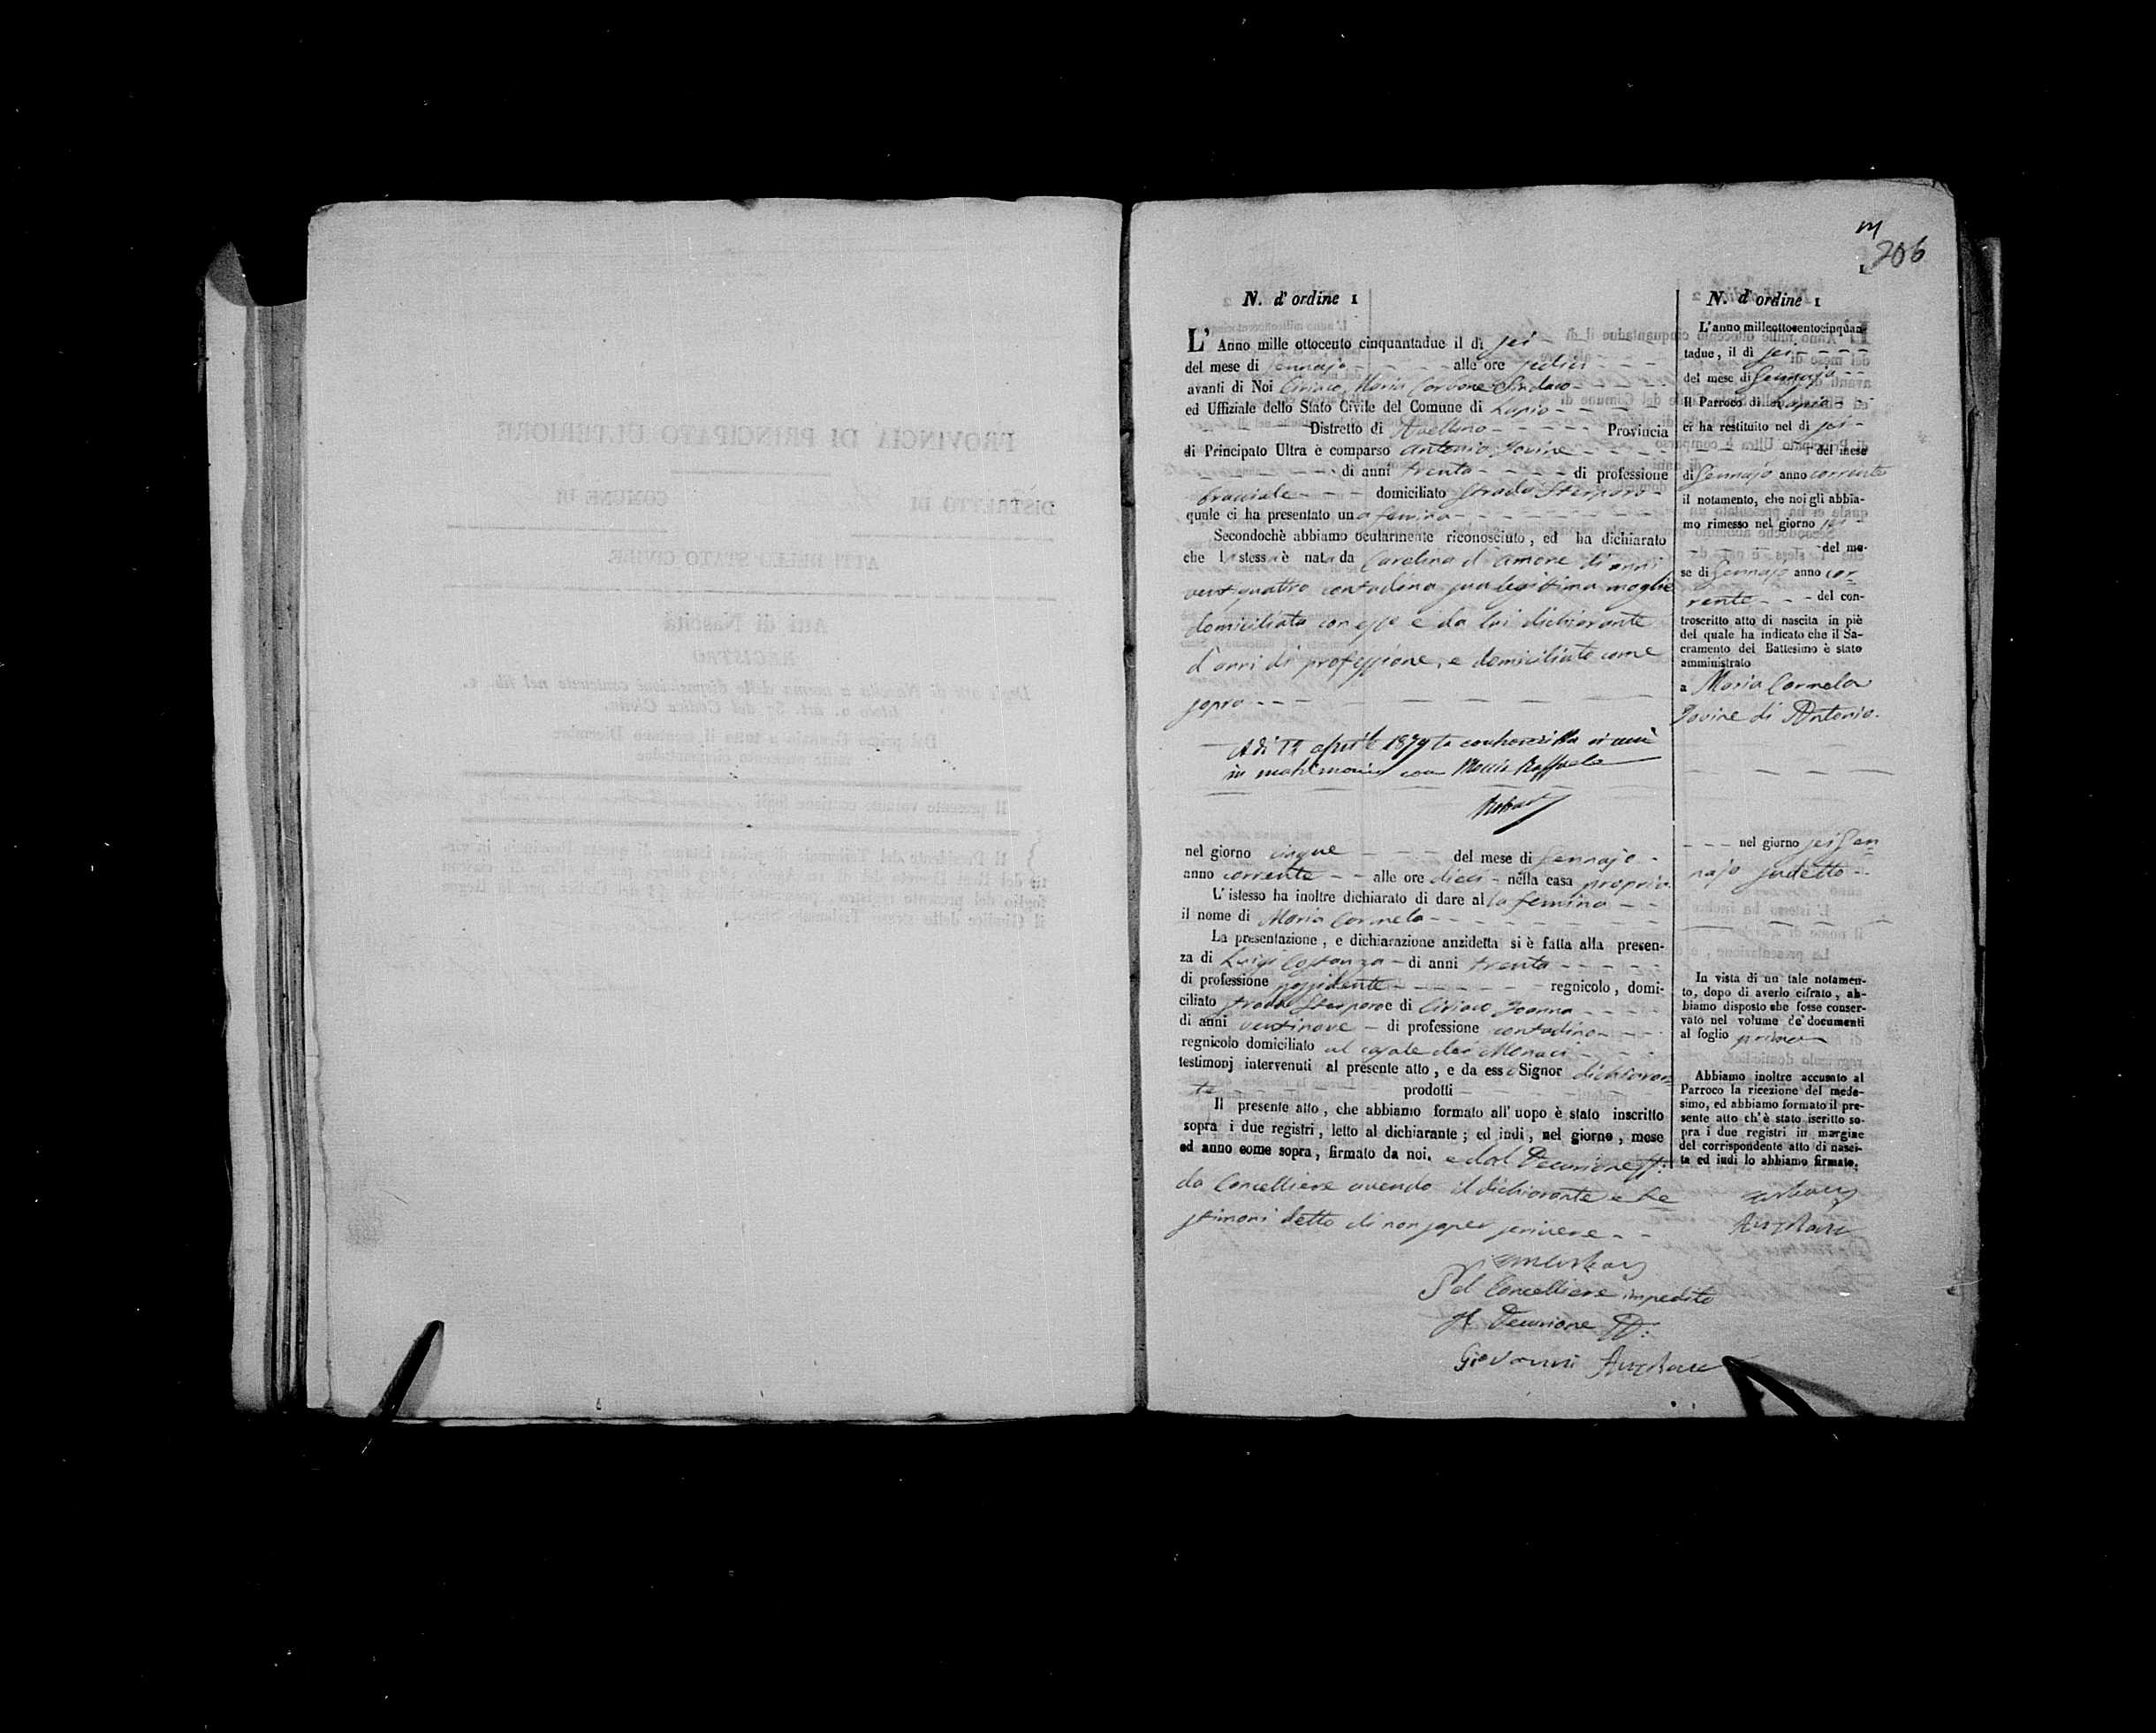 206
1
N. d' ordine 1
L' Anno mille ottocento cinquantadue il di sei
del mese di Gennajo alle ore sedici
avanti di Noi Ciriaco Maria Carbone Sindaco
ed Uffiziale dello Stato Civile del Comune di Lapio
Distretto di Avellino Provincia
di Principato Ultra è comparso Antonio Iovine
di anni trenta di professione
bracciale domiciliato Strada Sterparo
quale ci ha presentato una femina
Secondochè abbiamo ocularmente riconosciuto, ed ha dichiarato
che l stess è nata da Carolina d'amore di anni
ventiquattro contadina sua legittima moglie
domiciliata con esso e da lui dichiarante
d'anni di professione, e domiciliato come
sopra
Adi 19 aprile 1879 la controscritta si unì
in matrimonio con Raffaele
nel giorno cinque del mese di Gennajo
anno corrente alle ore dieci nella casa propria
L' istesso ha inoltre dichiarato di dare alla femina
il nome di Maria Carmela
La presentazione, e dichiarazione anzidetta si è fatta alla presen-
za di Luigi Costanza di anni trenta
di professione possidente regnicolo, domi-
ciliato strada Sterparo e di Ciriaco Ioanna
di anni ventinove di professione contadino
regnicolo domiciliato al casale dei Monaci
testimonj intervenuti al presente atto, e da esso Signor dichiaran
te prodotti
Il presente atto, che abbiamo formato all' uopo è stato inscritto
sopra i due registri, letto al dichiarante; ed indi, nel giorno, mese
ed anno come sopra, firmato da noi. e dal Decurione ff:
da Cancelliere avendo il dichiarante e te
stimoni detto di non saper scrivere
Pel Cancelliere impedito
Il Decurione ff:
Giovanni
N. d' ordine 1
L'anno milleottocentocinquan-
tadue, il dì sei
del mese di Gennajo
Il Parroco di Lapio
ci ha restituito nel di sei
del mese
di Gennajo anno corrente
il notamento, che noi gli abbia-
mo rimesso nel giorno sei
del me-
se di Gennajo anno cor
rente del con-
troscritto atto di nascita in piè
del quale ha indicato che il Sa-
cramento del Battesimo è stato
amministrato
a Maria Carmela
Iovine di Antonio.
nel giorno sei Gen
najo sudetto
In vista di un tale notamen-
to, dopo di averlo cifrato, ab-
biamo disposto che fosse conser-
vato nel volume de' documenti
al foglio primo
Abbiamo inoltre accusato al
Parroco la ricezione del mede-
simo, ed abbiamo formato il pre-
sente atto ch'è stato iscritto so-
pra i due registri in margine
del corrispondente atto di nasci-
ta ed indi lo abbiamo firmato.